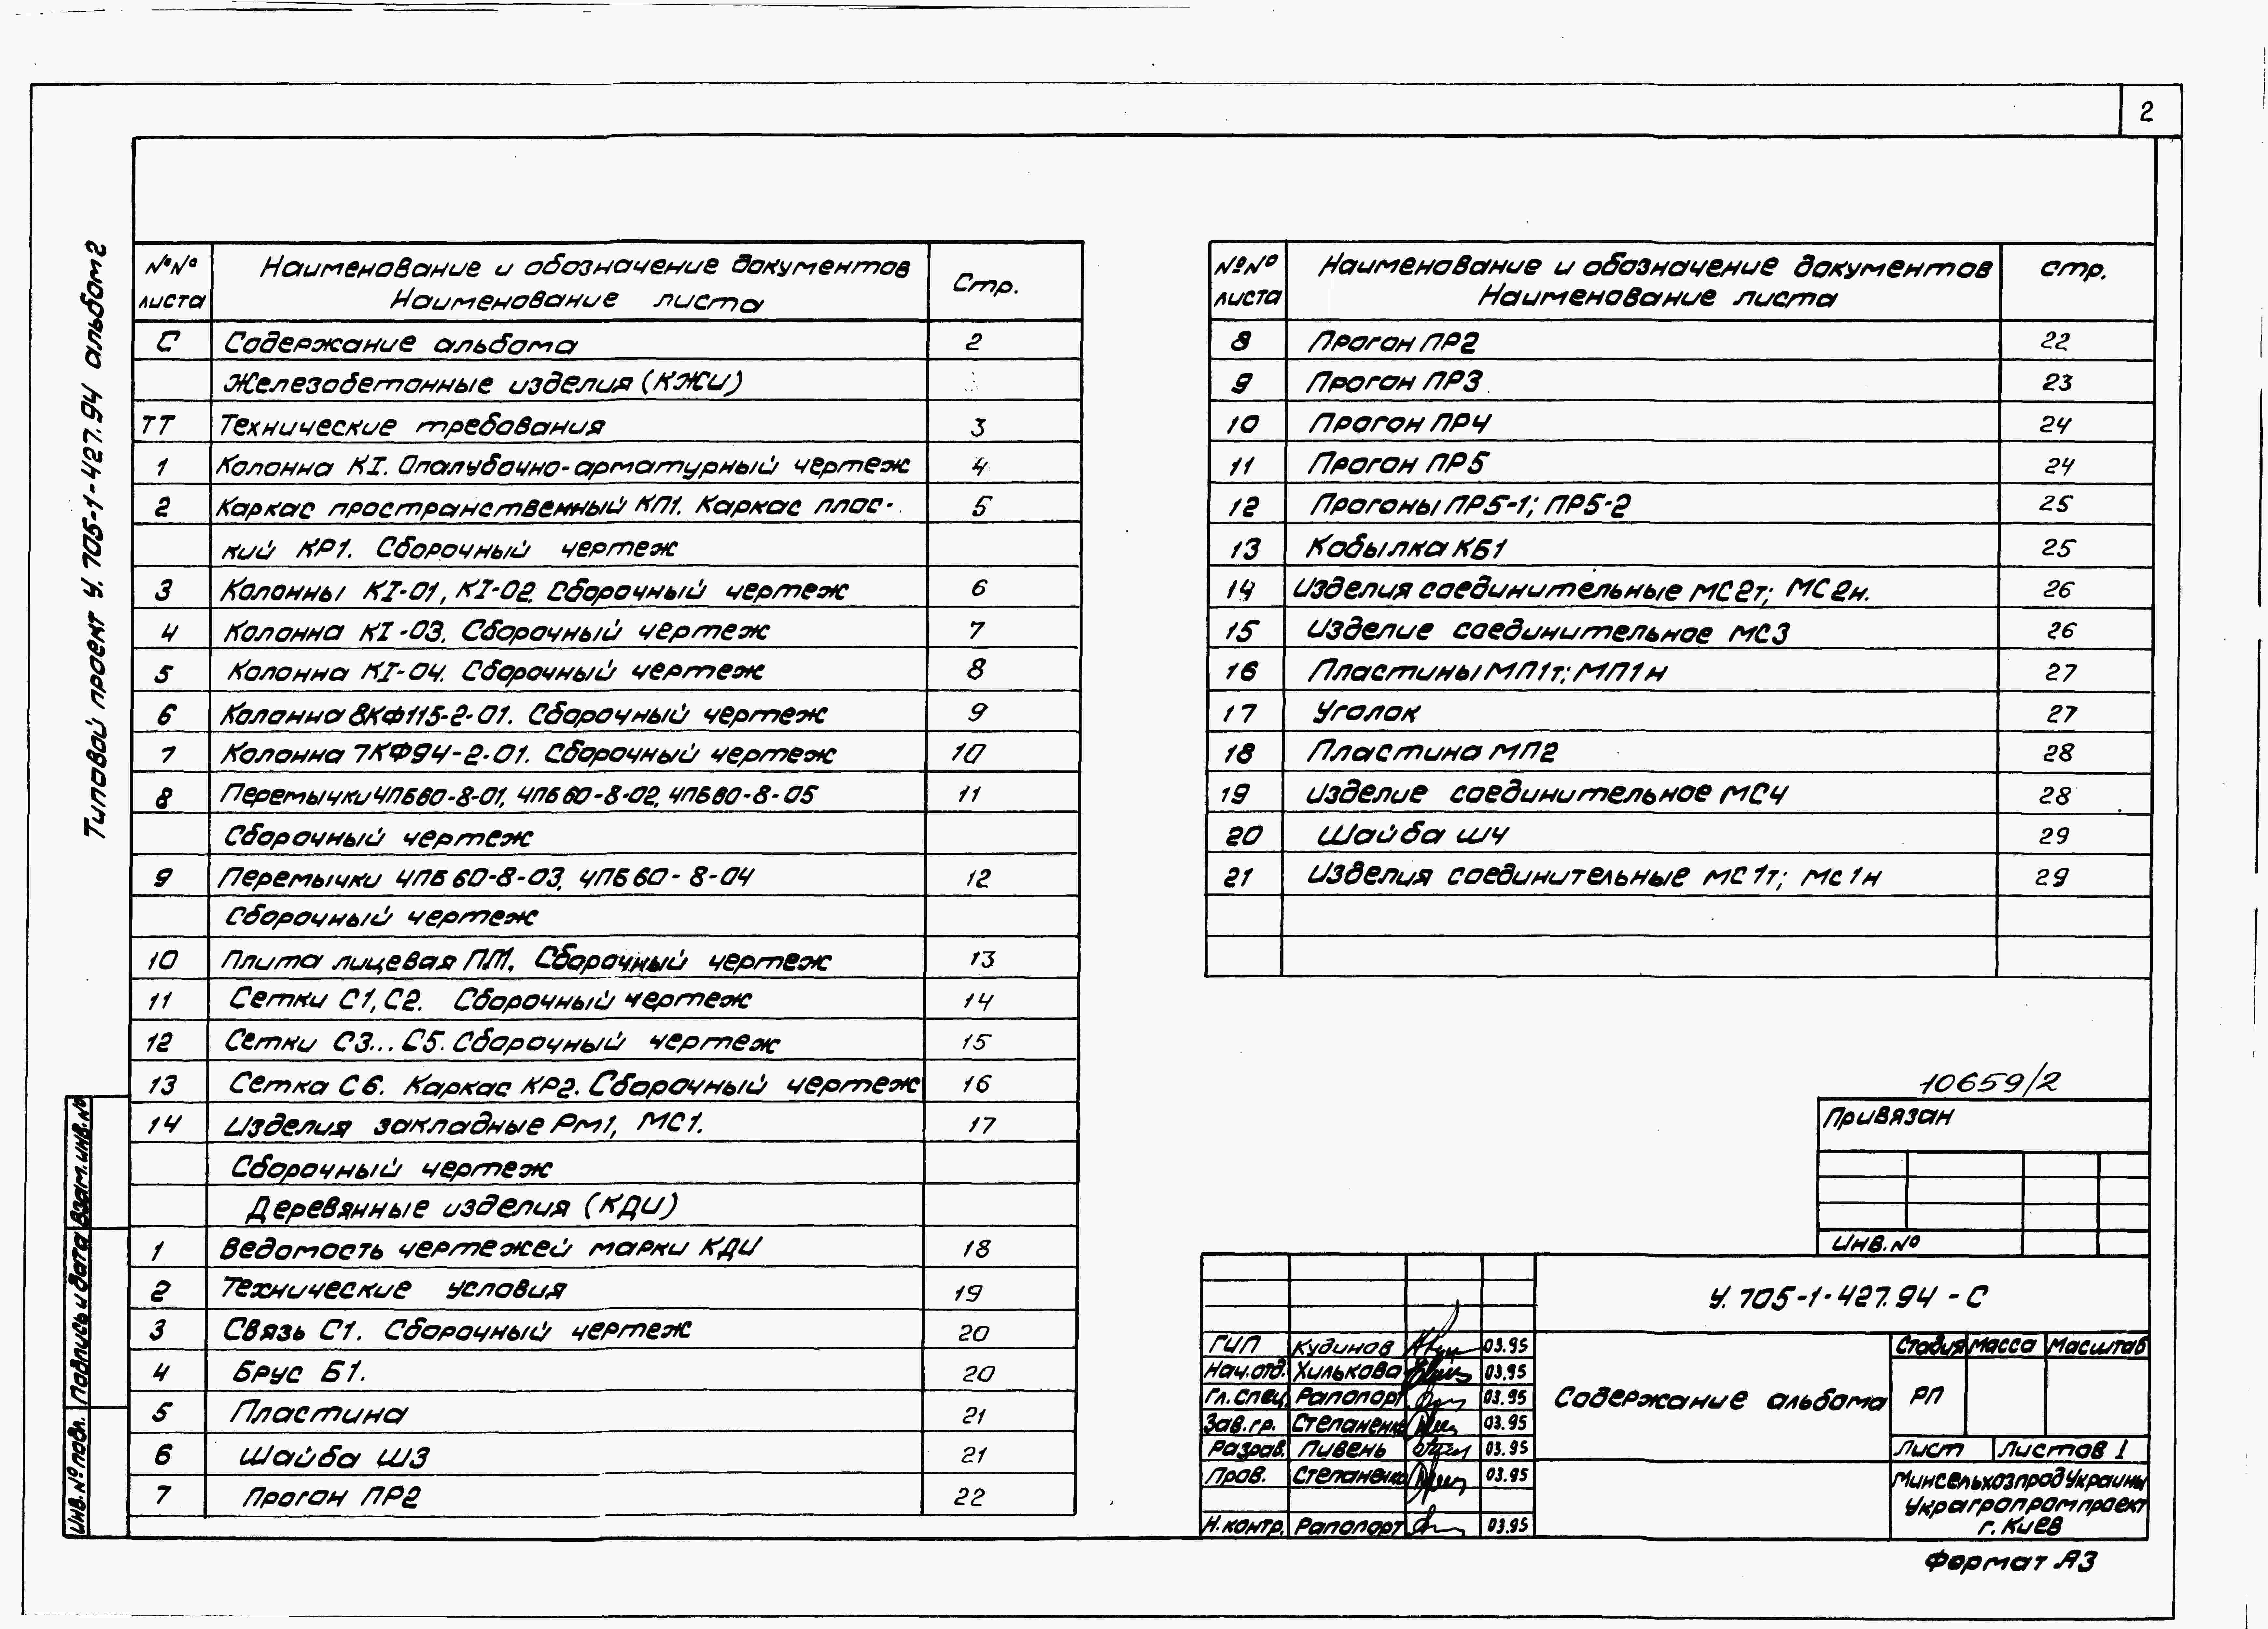 2
Типовой проект У.705-1-427.94 альбом 2
№№ листа
Наименование и обозначение документов
Наименование листа
Стр.
С Содержание альбома 2
Железобетонные изделия (КЖИ)
ТТ Технические требования 3
1 Колонна КI. Опалубочно-арматурный чертеж 4
2 Каркас пространственный КП1. Каркас плос- 5
кий КР1. Сборочный чертеж
3 Колонны КI-01, КI-02. Сборочный чертеж 6
4 Колонна КI-03. Сборочный чертеж 7
5 Колонна КI-04. Сборочный чертеж 8
6 Колонна 8КФ115-2-01. Сборочный чертеж 9
7 Колонна 7КФ94-2-01. Сборочный чертеж 10
8 Перемычки 4ПБ60-8-01, 4ПБ60-8-02, 4ПБ60-8-05 11
Сборочный чертеж
9 Перемычки 4ПБ60-8-03, 4ПБ60-8-04 12
Сборочный чертеж
10 Плита лицевая ПЛ1. Сборочный чертеж 13
11 Сетки С1, С2. Сборочный чертеж 14
12 Сетки С3...С5. Сборочный чертеж 15
13 Сетка С6. Каркас КР2. Сборочный чертеж 16
14 Изделия закладные Рм1, МС1. 17
Сборочный чертеж
Деревянные изделия (КДИ)
1 Ведомость чертежей марки КДИ 18
2 Технические условия 19
3 Связь С1. Сборочный чертеж 20
4 Брус Б1. 20
5 Пластина 21
6 Шайба Ш3 21
7 Прогон ПР2 22
№№ листа
Наименование и обозначение документов
Наименование листа
стр.
8 Прогон ПР2 22
9 Прогон ПР3 23
10 Прогон ПР4 24
11 Прогон ПР5 24
12 Прогоны ПР5-1; ПР5-2 25
13 Кобылка КБ1 25
14 Изделия соединительные МС2т; МС2н. 26
15 Изделие соединительное МС3 26
16 Пластины МП1т; МП1н 27
17 Уголок 27
18 Пластина МП2 28
19 Изделие соединительное МС4 28
20 Шайба Ш4 29
21 Изделия соединительные МС1т; Мс1н 29
10659/2
Привязан
Инв.№
У.705-1-427.94-С
ГИП Кудинов 03.95
Нач.отд. Хилькова 03.95
Гл.спец. Рапопорт 03.95
Зав.гр. Степаненко 03.95
Разраб. Пивень 03.95
Пров. Степаненко 03.95
Н.контр. Рапопорт 03.95
Содержание альбома
Стадия Масса Масштаб
РП
Лист Листов 1
Минсельхозпрод Украины
Украгропромпроект
г. Киев
Формат А3
Взам.инв.№
Подпись и дата
Инв.№ подл.